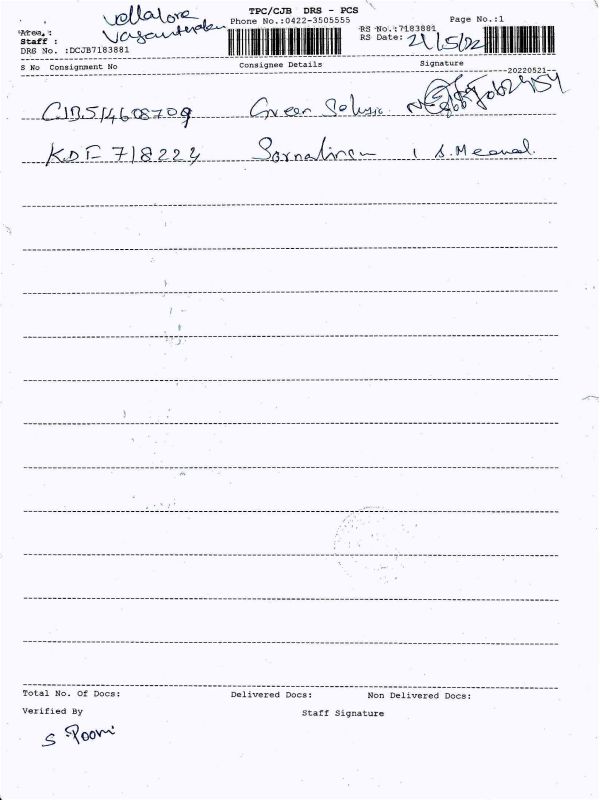 TPC/CJB DRS - PCS
Area. : Vellalore
Phone No.:0422-3505555
Page No.:1
Staff :
RS No.:7183881
DRS No. :DCJB7183881
RS Date: 21/5/22
S No Consignment No
Consignee Details
Signature
20220521
CJB514608709 Green
KDF 718224 1 S.Meenal.
Total No. Of Docs:
Delivered Docs:
Non Delivered Docs:
Verified By
Staff Signature
S Poorni